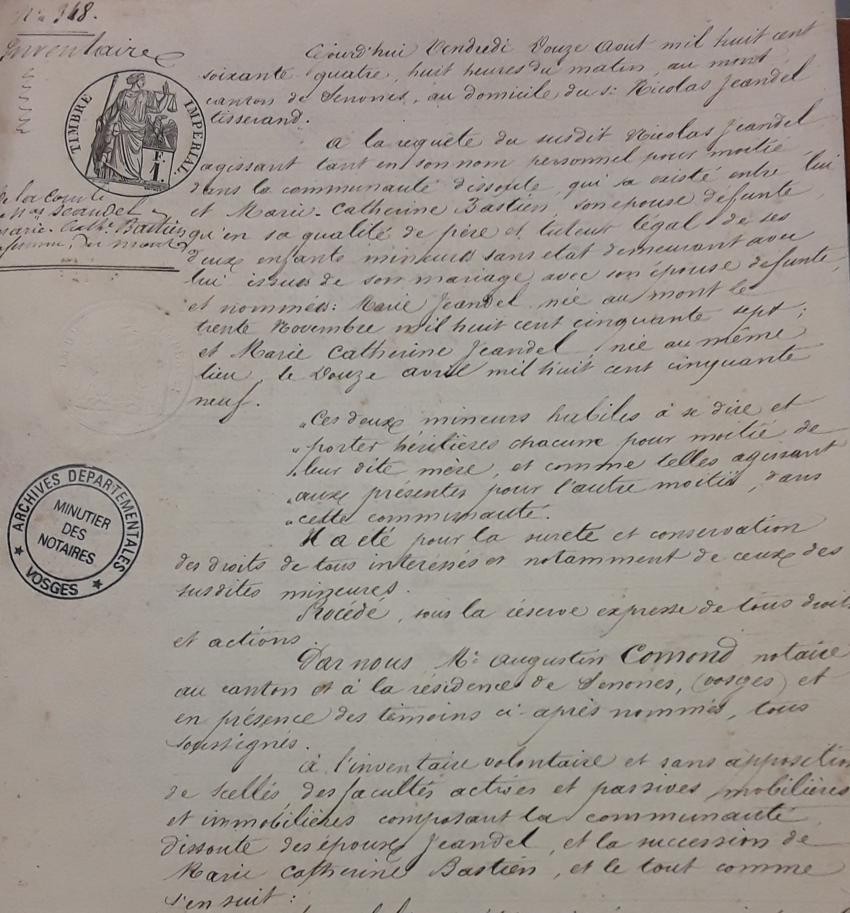 N° 348.
Inventaire
TIMBRE IMPÉRIAL.
F. 1.
De la comté
Nas Jeandel
Marie. Cathe. Bastien
femme, du mont
ARCHIVES DÉPARTEMENTALES
MINUTIER
DES
NOTAIRES
VOSGES
Cejourd'hui Vendredi Douze Aout mil huit cent
soixante quatre, huit heures du matin, au mont
canton de Senones, au domicile du sr. Nicolas Jeandel
tisserand.
A la requête du susdit Nicolas Jeandel
agissant tant en son nom personnel pour moitié
dans la communauté dissoute, qui a existé entre lui
et Marie-Catherine Bastien, son épouse défunte
qu'en sa qualité de père et tuteur légal de ses
deux enfants mineurs sans état demeurant avec
lui issus de son mariage avec son épouse defunte,
et nommées: Marie Jeandel née au mont le
trente Novembre mil huit cent cinquante sept;
et Marie Catherine Jeandel, née au même
lieu, le Douze avril mil huit cent cinquante
neuf.
"Ces deux mineurs habiles à se dire et
"porter héritières chacune pour moitié, de
"leur dite mère, et comme telles agissant
"aux présentes pour l'autre moitié, dans
"cette communauté.
Il a été pour la sureté et conservation
des droits de tous intéressés et notamment de ceux des
susdites mineures.
Procédé, sous la réserve expresse de tous droits
et actions.
Par nous Me Augustin Comond notaire
au canton et à la résidence de Senones, (vosges) et
en présence des témoins ci-après nommés, tous
soussignés.
à l'inventaire volontaire et sans apposition
de scellés des facultés actives et passives, mobilières
et immobilières composant la communauté
dissoute des époux Jeandel, et la succession de
Marie Catherine Bastien, et le tout comme
s'en suit: